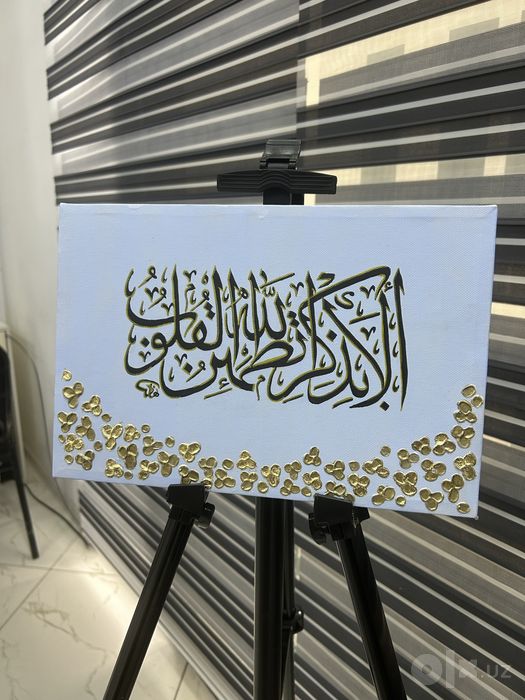 ألا بذكر الله تطمئن القلوب
OLX.uz